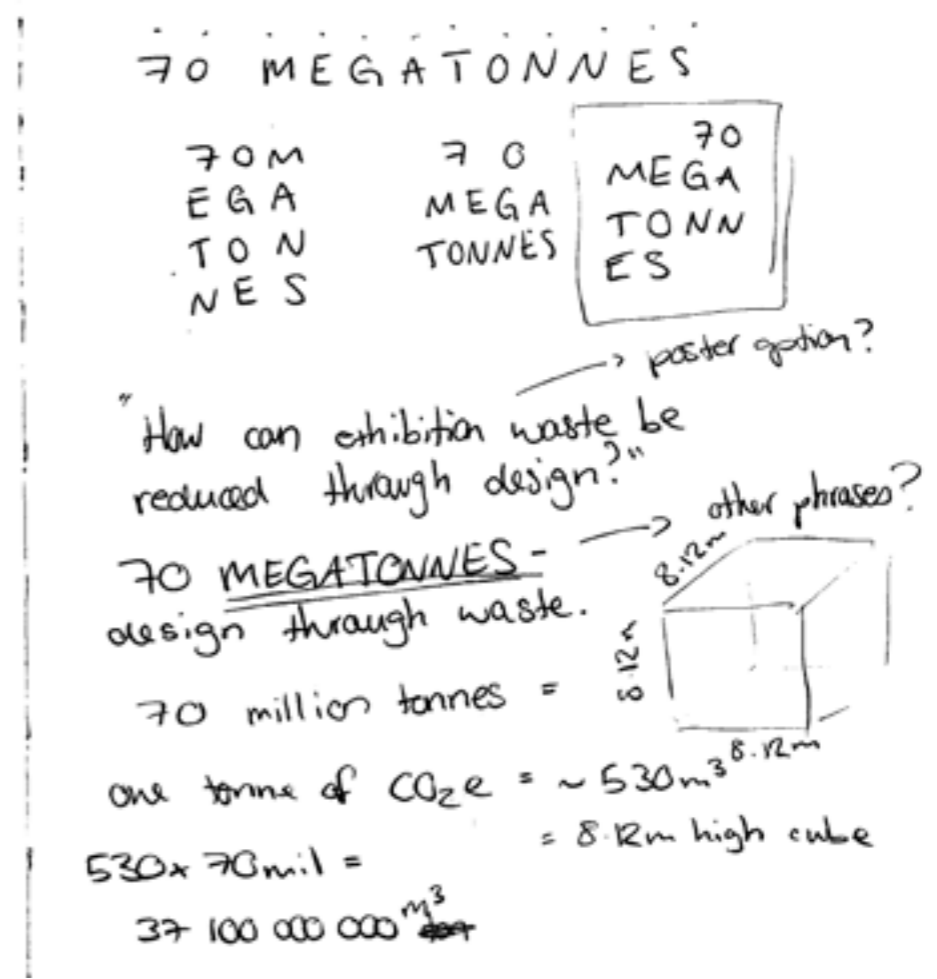 70 MEGATONNES
70M
EGA
TON
NES
70
MEGA
TONNES
70
MEGA
TONN
ES
→ poster
"How can exhibition waste be
reduced through design?"
→ other phrases?
70 MEGATONNES -
design through waste.
8.12m
8.12m
8.12m
70 million tonnes =
one tonne of CO₂e = ~530m³
= 8.12m high cube
530x 70mil =
37 100 000 000 m³